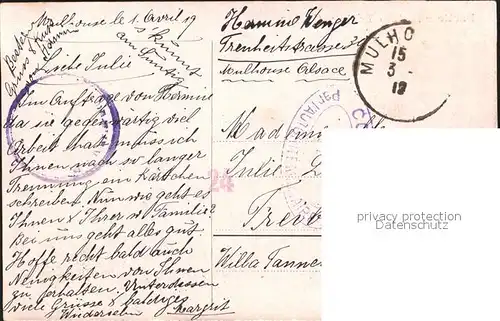 Mulhouse le 1. Avril 19
Beste
Gruss & Kuss
von Hermine
kommt
am Sonntag
Liebe Julie
Im Auftrage von Hermine
da sie gegenwärtig viel
Arbeit hat muss ich
Ihnen nach so langer
Trennung ein Kärtchen
schreiben. Nun wie geht es
Ihnen & Ihrer w Familie?
Bei uns geht alles gut.
Hoffe recht bald auch
Neuigkeiten von Ihnen
zu erhalten. Unterdessen
viele Grüsse & baldiges
Wiedersehen Margrit
Wenger
Mulhouse Alsace
MULHO
15
3
19
Par AUTORITE
24
Mademoi
Julie
Villa Tanne
privacy protection
Datenschutz